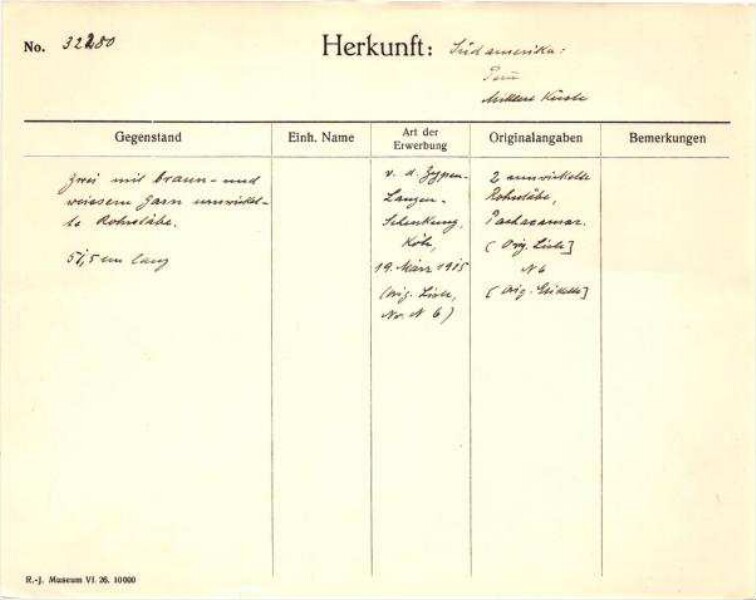 No. 32280
Herkunft: Südamerika:
Peru
Mittlere Küste
Gegenstand
Einh. Name
Art der
Erwerbung
Originalangaben
Bemerkungen
Zwei mit braun- und
weissem Garn umwickel-
te Rohrstäbe.
51,5 cm lang
v. d. Zypen-
Langen-
Schenkung,
Köln,
19. März 1915
(Orig. Liste,
Nr. N 6)
2 umwickelte
Rohrstäbe,
Pachacamac.
(Orig. Liste]
N 6
(Orig. Etikette]
R.-J. Museum VI. 26. 10000